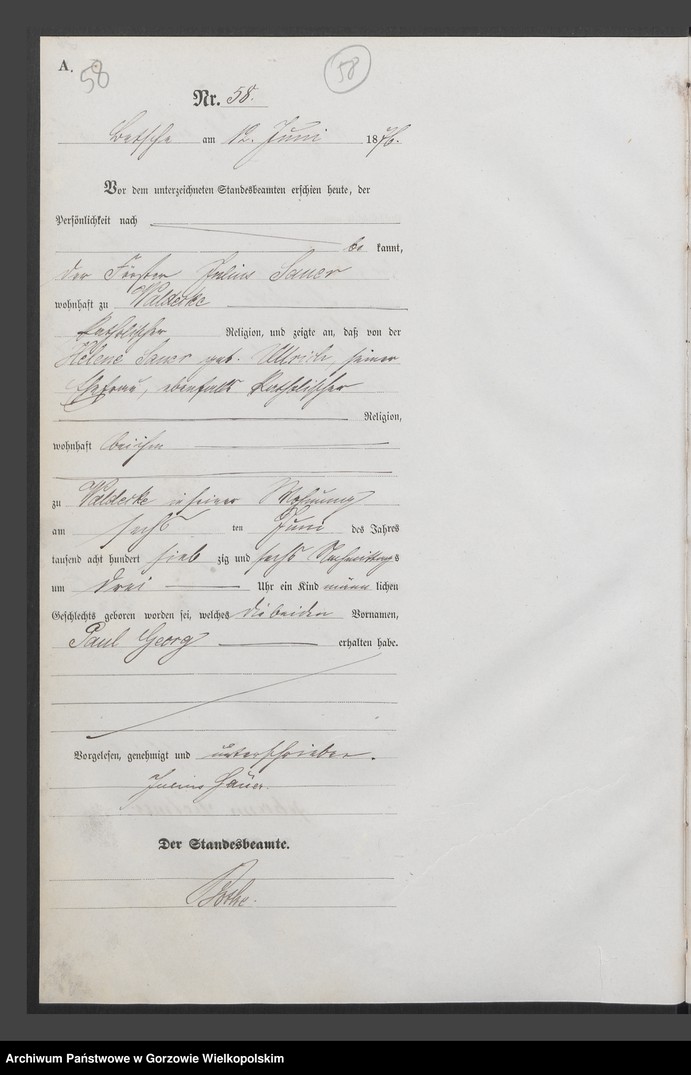 A.
58
58
Nr. 58.
Betsche am 12. Juni 1876.
Vor dem unterzeichneten Standesbeamten erschien heute, der
Persönlichkeit nach
be kannt,
der Förster Julius Sauer
wohnhaft zu Waldecke
katholischer Religion, und zeigte an, daß von der
Helene Sauer geb. Ullrich, seiner
Ehefrau, ebenfalls katholischer
Religion,
wohnhaft bei ihm
zu Waldecke in seiner Wohnung
am sechs ten Juni des Jahres
tausend acht hundert sieb zig und sechs Nachmittags
um drei Uhr ein Kind männ lichen
Geschlechts geboren worden sei, welches die beiden Vornamen,
Paul Georg erhalten habe.
Vorgelesen, genehmigt und unterschrieben.
Julius Sauer.
Der Standesbeamte.
Archiwum Państwowe w Gorzowie Wielkopolskim